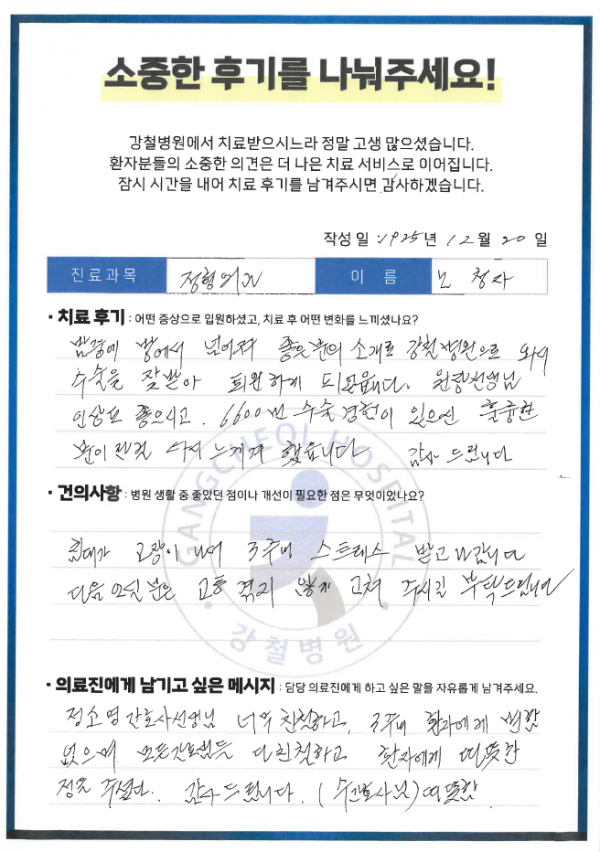 소중한 후기를 나눠주세요!
강철병원에서 치료받으시느라 정말 고생 많으셨습니다.
환자분들의 소중한 의견은 더 나은 치료 서비스로 이어집니다.
잠시 시간을 내어 치료 후기를 남겨주시면 감사하겠습니다.
작성 일 : 1925년 12월 20일
진료과목 정형외과 이 름 노청자
• 치료 후기 : 어떤 증상으로 입원하셨고, 치료 후 어떤 변화를 느끼셨나요?
방에서 넘어져 좋은분의 소개로 강철병원으로 와서
수술을 잘받아 퇴원하게 되었읍니다. 원장선생님
인상도 좋으시고. 6600번 수술경험이 있으신 훌륭한
분이란걸 다시 느끼게 했읍니다 감사 드립니다
GANGCHEOL HOSPITAL
강철병원
• 건의사항 : 병원 생활 중 좋았던 점이나 개선이 필요한 점은 무엇이었나요?
침대가 고장이 나서 3주내 스트레스 받고 나갑니다
다음 오실 분은 고통 겪지 않게 고쳐 주시길 부탁드립니다
• 의료진에게 남기고 싶은 메시지 : 담당 의료진에게 하고 싶은 말을 자유롭게 남겨주세요.
정소영간호사선생님 너무친절하고, 3주내 환자에게 변함
없으며 모든간호사님들 다친절하고 환자에게 따뜻한
정을 주셨다. 감사드립니다. (수간호사님) 따뜻함.